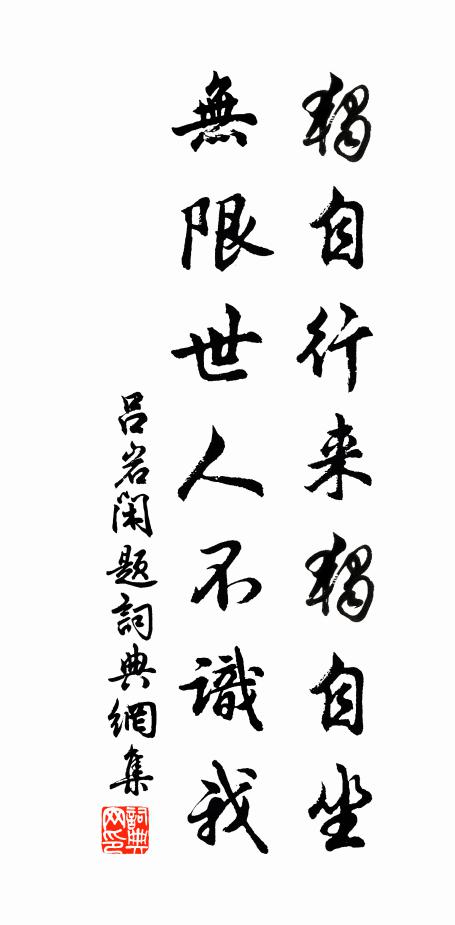 獨自行来獨自坐
無限世人不識我
吕岩閑題詞典網集
詞典网印